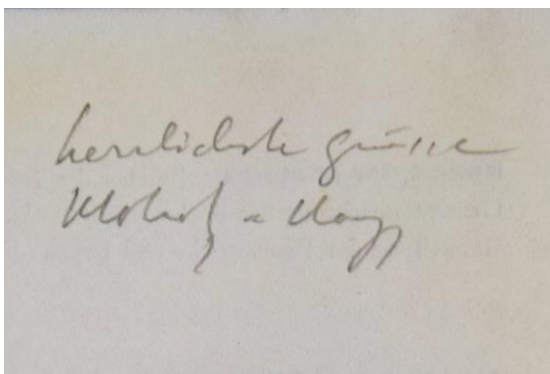 herzlichste grüsse
Moholy = Nagy